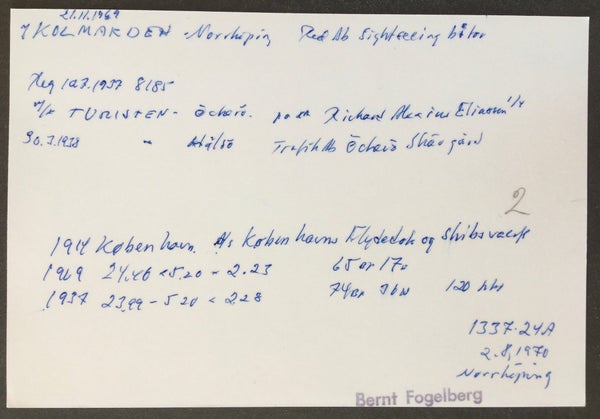 21.11.1969
M/ KOLMARDEN - Norrköping Red Ab Sightseeing båtar
Reg 12.3.1937 8185
M/S TURISTEN - Öckerö. Richard Alexius Eliasson 1/4
30.3.1938 " Hälsö Trafik Ab Öckerö Skärgård
2
1914 København. A/s Københavns Flydedok og Skibsværft
1969 24,46 × 5.20 - 2.23 65 Br 17n
1937 23,99 - 5.20 × 228 74 Br 36 N 120 hkr
1337-24A
2.8.1970
Norrköping
Bernt Fogelberg